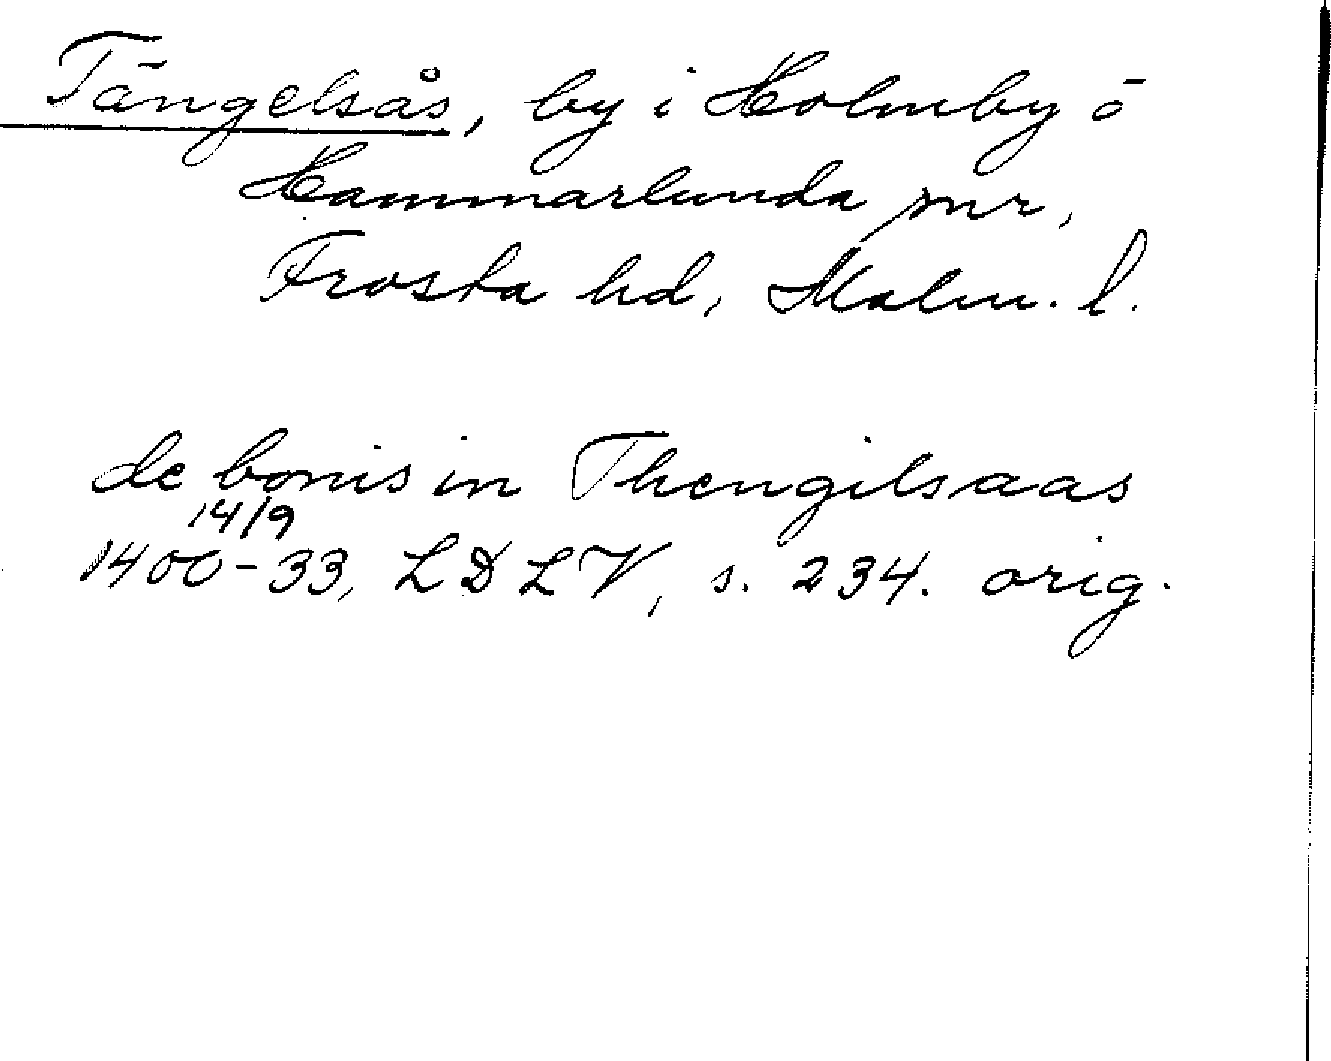 Tängelsås, by i Holmby o
Hammarlunda snr,
Frosta hd, Malm. l.
de bonis in Thengilsaas
14/9
1400-33, LDLV, s. 234. orig.